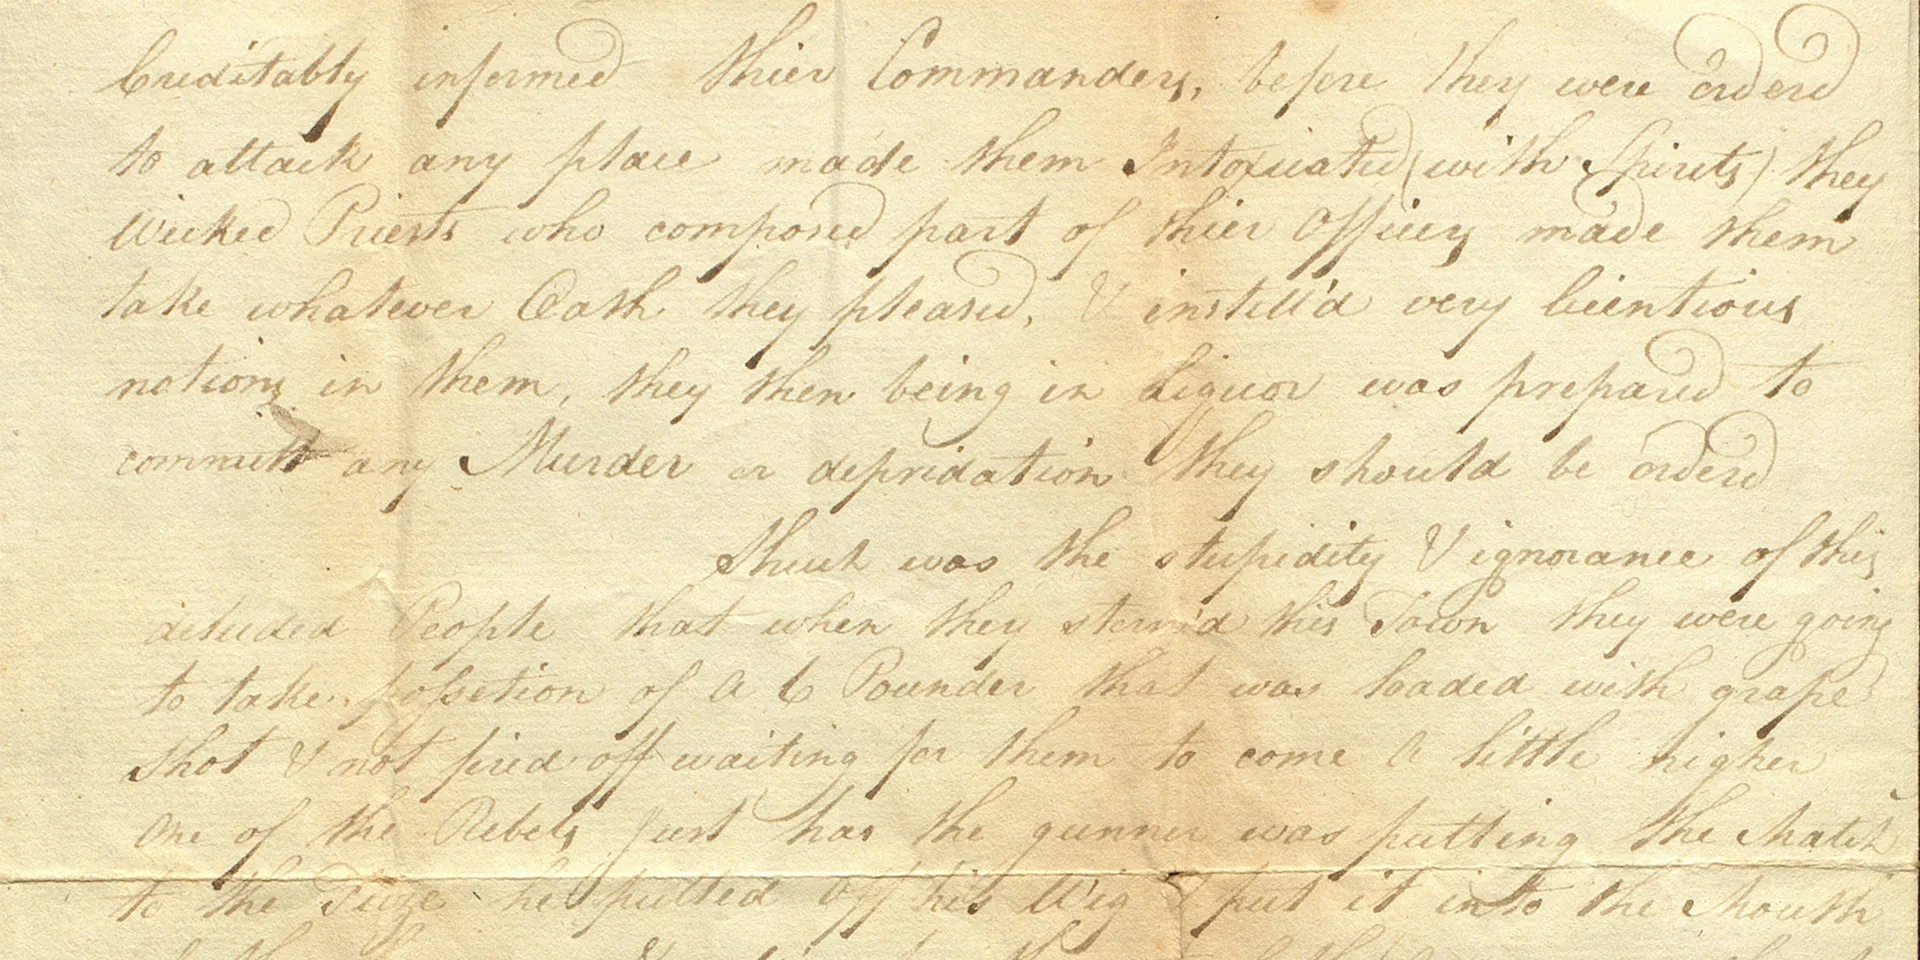 Creditably informed thier Commanders, before they were orderd
to attack any place made them Intoxicated (with Spirits) they
Wicked Priests who composed part of thier Officers made them
take whatever Oath they pleased, & instill'd very licentious
notions in them, they then being in Liquor was prepared to
committ any Murder or depridation they should be orderd
Shuch was the stupidity & ignorance of this
deluded People that when they storm'd this Town they were going
to take possetion of a 6 Pounder that was loaded with grape
shot & not fired off waiting for them to come a little nigher
One of the Rebels just has the gunner was putting the Match
to the Fuze he pulled off his Wig & put it into the Mouth